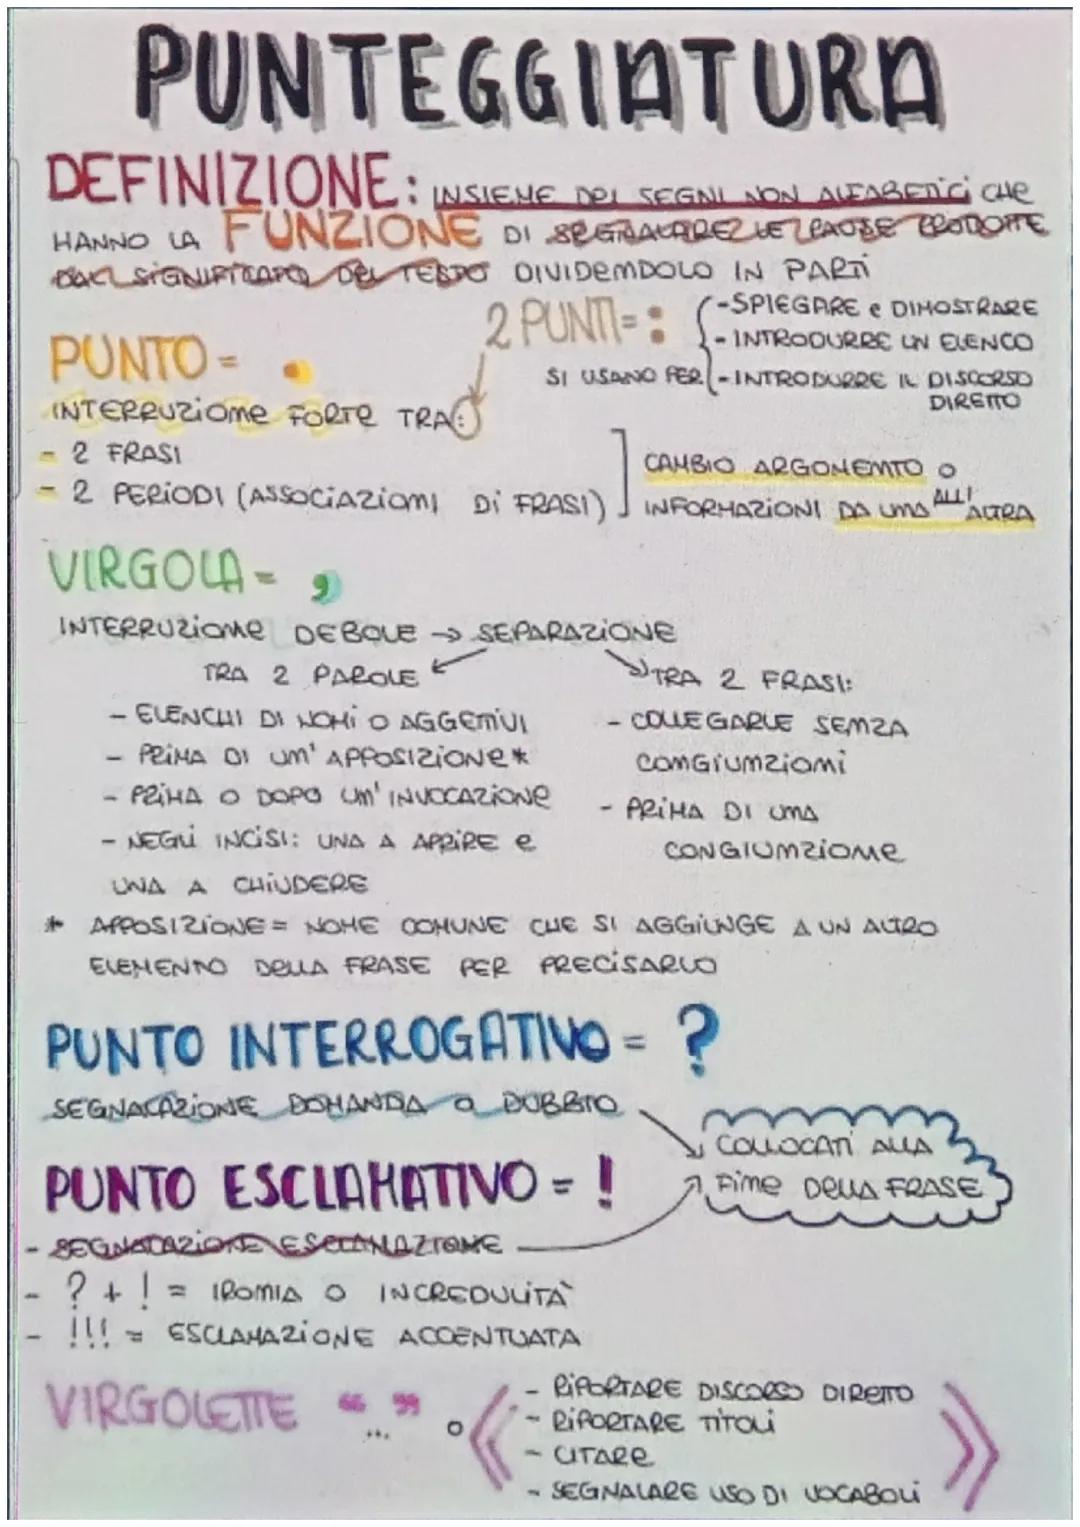 PUNTEGGIATURA
DEFINIZIONE: INSIEME DEI SEGNI NON ALFABETICI CHE
HANNO LA FUNZIONE DI SEGNALARE LE PAUSE PRODOTTE
DAL SIGNIFICATO DEL TESTO DIVIDENDOLO IN PARTI
2 PUNTI = :
SI USANO PER
- SPIEGARE e DIMOSTRARE
- INTRODURRE UN ELENCO
- INTRODURRE IL DISCORSO
DIRETTO
PUNTO = .
INTERRUZIONE FORTE TRA:
- 2 FRASI
- 2 PERIODI (ASSOCIAZIONI DI FRASI)
CAMBIO ARGOMENTO O
INFORMAZIONI DA UNA ALL'ALTRA
VIRGOLA = ,
INTERRUZIONE DEBOLE → SEPARAZIONE
TRA 2 PAROLE
- ELENCHI DI NOMI O AGGETTIVI
- PRIMA DI UN' APPOSIZIONE*
- PRIMA O DOPO UN' INVOCAZIONE
- NEGLI INCISI: UNA A APRIRE E
UNA A CHIUDERE
TRA 2 FRASI:
- COLLEGARLE SENZA
CONGIUNZIONI
- PRIMA DI UNA
CONGIUNZIONE
* APPOSIZIONE = NOME COMUNE CHE SI AGGIUNGE A UN ALTRO
ELEMENTO DELLA FRASE PER PRECISARLO
PUNTO INTERROGATIVO = ?
SEGNALAZIONE DOMANDA O DUBBIO
COLLOCATI ALLA
FINE DELLA FRASE
PUNTO ESCLAMATIVO = !
- SEGNALAZIONE ESCLAMAZIONE
- ? + ! = IRONIA O INCREDULITÀ
- !!! = ESCLAMAZIONE ACCENTUATA
VIRGOLETTE “ ... ” o « »
- RIPORTARE DISCORSO DIRETTO
- RIPORTARE TITOLI
- CITARE
- SEGNALARE USO DI VOCABOLI